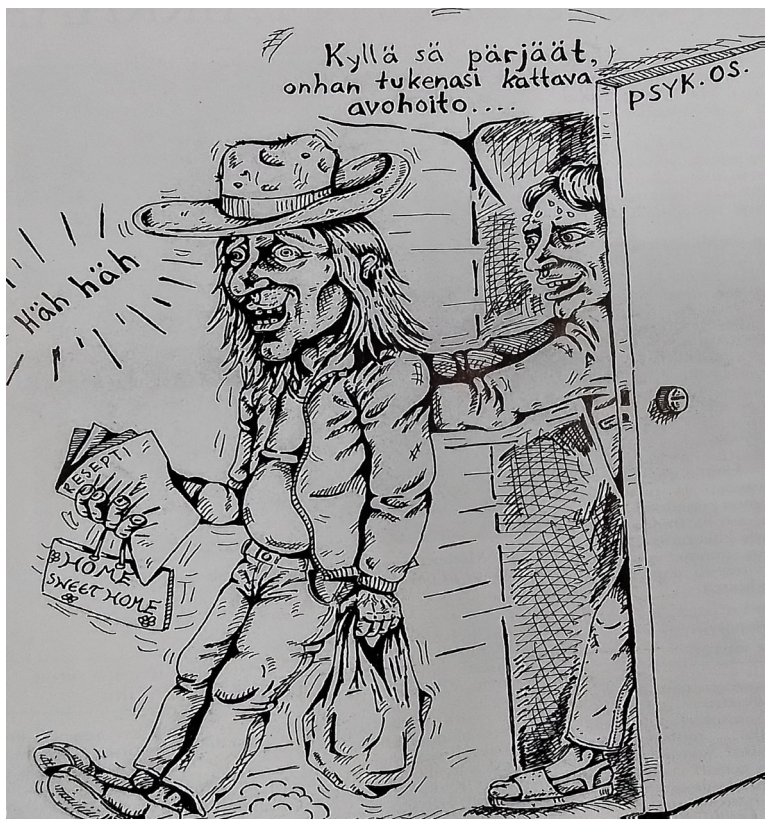 Kyllä sä pärjäät,
onhan tukenasi kattava
avohoito....
PSYK.OS.
Häh häh
RESEPTI
HOME
SWEET HOME